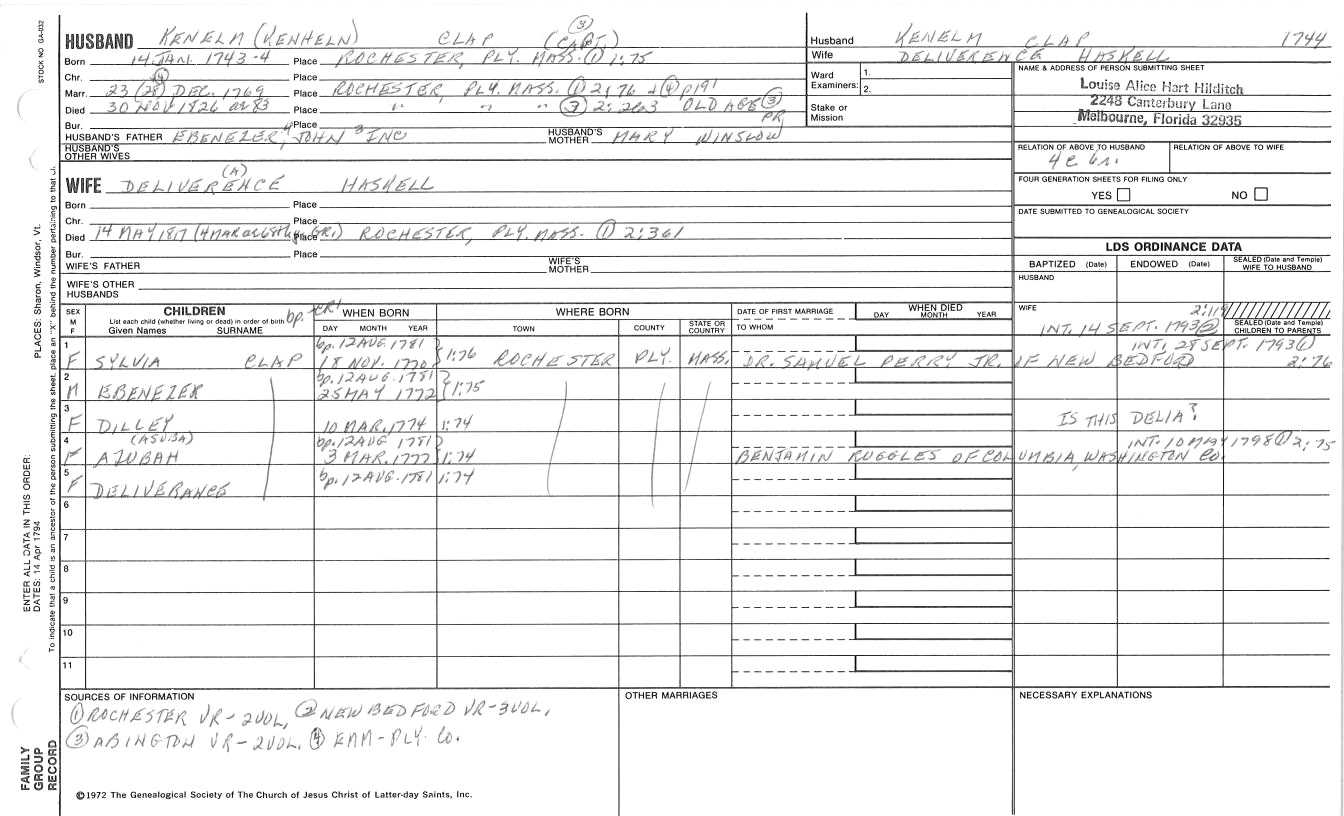 STOCK NO. GA-032
HUSBAND KENELM (KENHELN) CLAP (CAPT.) ③
Born 14 JAN. 1743-4 Place ROCHESTER, PLY. MASS. ① 1:75
Chr. Place
Marr. 23 (28) ④ DEC. 1769 Place ROCHESTER, PLY. MASS. ① 2:76 & ④ p191
Died 30 NOV 1826 ae 83 Place " " " ③ 2:263 OLD AGE ③ PR
Bur. Place
HUSBAND'S FATHER EBENEZER⁴, JOHN³ INC HUSBAND'S MOTHER MARY WINSLOW
HUSBAND'S OTHER WIVES
WIFE DELIVERENCE (A) HASKELL
Born Place
Chr. Place
Died 14 MAY 1817 Place ROCHESTER, PLY. MASS. ① 2:361
Bur. Place
WIFE'S FATHER WIFE'S MOTHER
WIFE'S OTHER HUSBANDS
Husband KENELM CLAP 1744
Wife DELIVERENCE HASKELL
Ward Examiners: 1. 2.
Stake or Mission
NAME & ADDRESS OF PERSON SUBMITTING SHEET
Louise Alice Hart Hilditch
2248 Canterbury Lane
Melbourne, Florida 32935
RELATION OF ABOVE TO HUSBAND RELATION OF ABOVE TO WIFE
4c 6r.
FOUR GENERATION SHEETS FOR FILING ONLY
YES NO
DATE SUBMITTED TO GENEALOGICAL SOCIETY
LDS ORDINANCE DATA
BAPTIZED (Date) ENDOWED (Date) SEALED (Date and Temple) WIFE TO HUSBAND
HUSBAND
WIFE
SEALED (Date and Temple) CHILDREN TO PARENTS
SEX M F
CHILDREN
List each child (whether living or dead) in order of birth
Given Names SURNAME
bp. + CR1
WHEN BORN
DAY MONTH YEAR
WHERE BORN
TOWN COUNTY STATE OR COUNTRY
DATE OF FIRST MARRIAGE
TO WHOM
WHEN DIED
DAY MONTH YEAR
2:119
INT. 14 SEPT. 1793 ②
1 bp. 12 AUG. 1781 INT. 28 SEPT. 1793 ①
F SYLVIA CLAP 18 NOV. 1770 1:76 ROCHESTER PLY. MASS. DR. SAMUEL PERRY JR. OF NEW BEDFORD 2:76
2 bp. 12 AUG. 1781
M EBENEZER 25 MAY 1772 1:75
3
F DILLEY 10 MAR. 1774 1:74 IS THIS DELIA?
4 (ASUBA) bp. 12 AUG 1781 INT. 10 MAY 1798 ① 2:75
F AZUBAH 3 MAR. 1777 1:74 BENJAMIN RUGGLES OF COLUMBIA, WASHINGTON CO.
5 bp. 12 AUG. 1781 1:74
F DELIVERANCE
6
7
8
9
10
11
SOURCES OF INFORMATION
① ROCHESTER VR-2VOL, ② NEW BEDFORD VR-3VOL,
③ ABINGTON VR-2VOL. ④ EMM-PLY. Co.
OTHER MARRIAGES
NECESSARY EXPLANATIONS
©1972 The Genealogical Society of The Church of Jesus Christ of Latter-day Saints, Inc.
FAMILY GROUP RECORD
ENTER ALL DATA IN THIS ORDER:
DATES: 14 Apr 1794
PLACES: Sharon, Windsor, Vt.
To indicate that a child is an ancestor of the person submitting the sheet, place an "X" behind the number pertaining to that